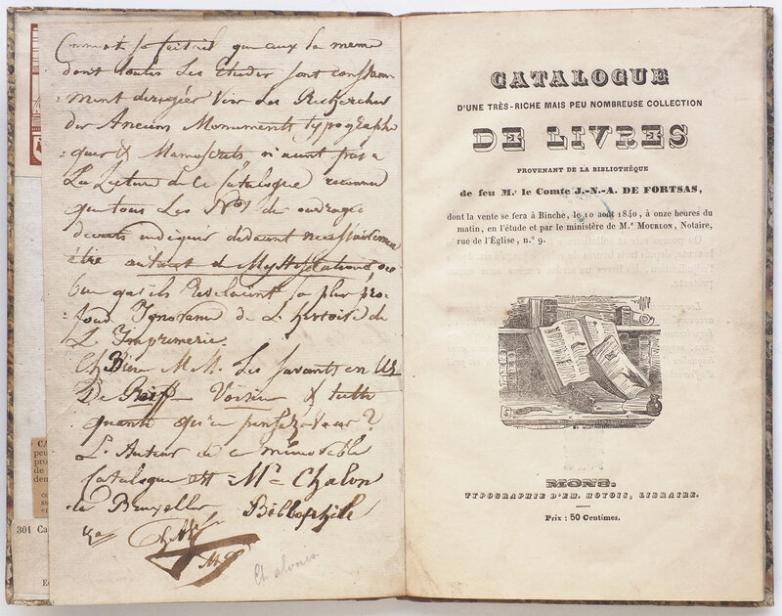 301 Ca
Comment se fait-il que aux la meme
dont toutes les Etudes sont constam-
ment vers les Recherches
des Anciens Monuments typographi
:ques & Manuscrits, n'aient pas a
La Lecture de ce Catalogue reconnu
que tous les Nos de ouvrages
necessairement
etre autant de Mystifications, ou
bien qu'ils la plus pro-
fond Ignorance de L'histoire de
L'Imprimerie.
Les savants en us
De Reiff Voisin & tutti
quanti qu'en pensez-vous?
L'Auteur de ce memorable
Catalogue est Mr Chalon
de Bruxelles Bibliophile
Chalonis
CATALOGUE
D'UNE TRÈS-RICHE MAIS PEU NOMBREUSE COLLECTION
DE LIVRES
PROVENANT DE LA BIBLIOTHÈQUE
de feu M.r le Comte J.-N.-A. DE FORTSAS,
dont la vente se fera à Binche, le 10 août 1840, à onze heures du
matin, en l'étude et par le ministère de M.e MOURLON, Notaire,
rue de l'Église, n.o 9.
MONS.
TYPOGRAPHIE D'EM. HOYOIS, LIBRAIRE.
Prix : 50 Centimes.